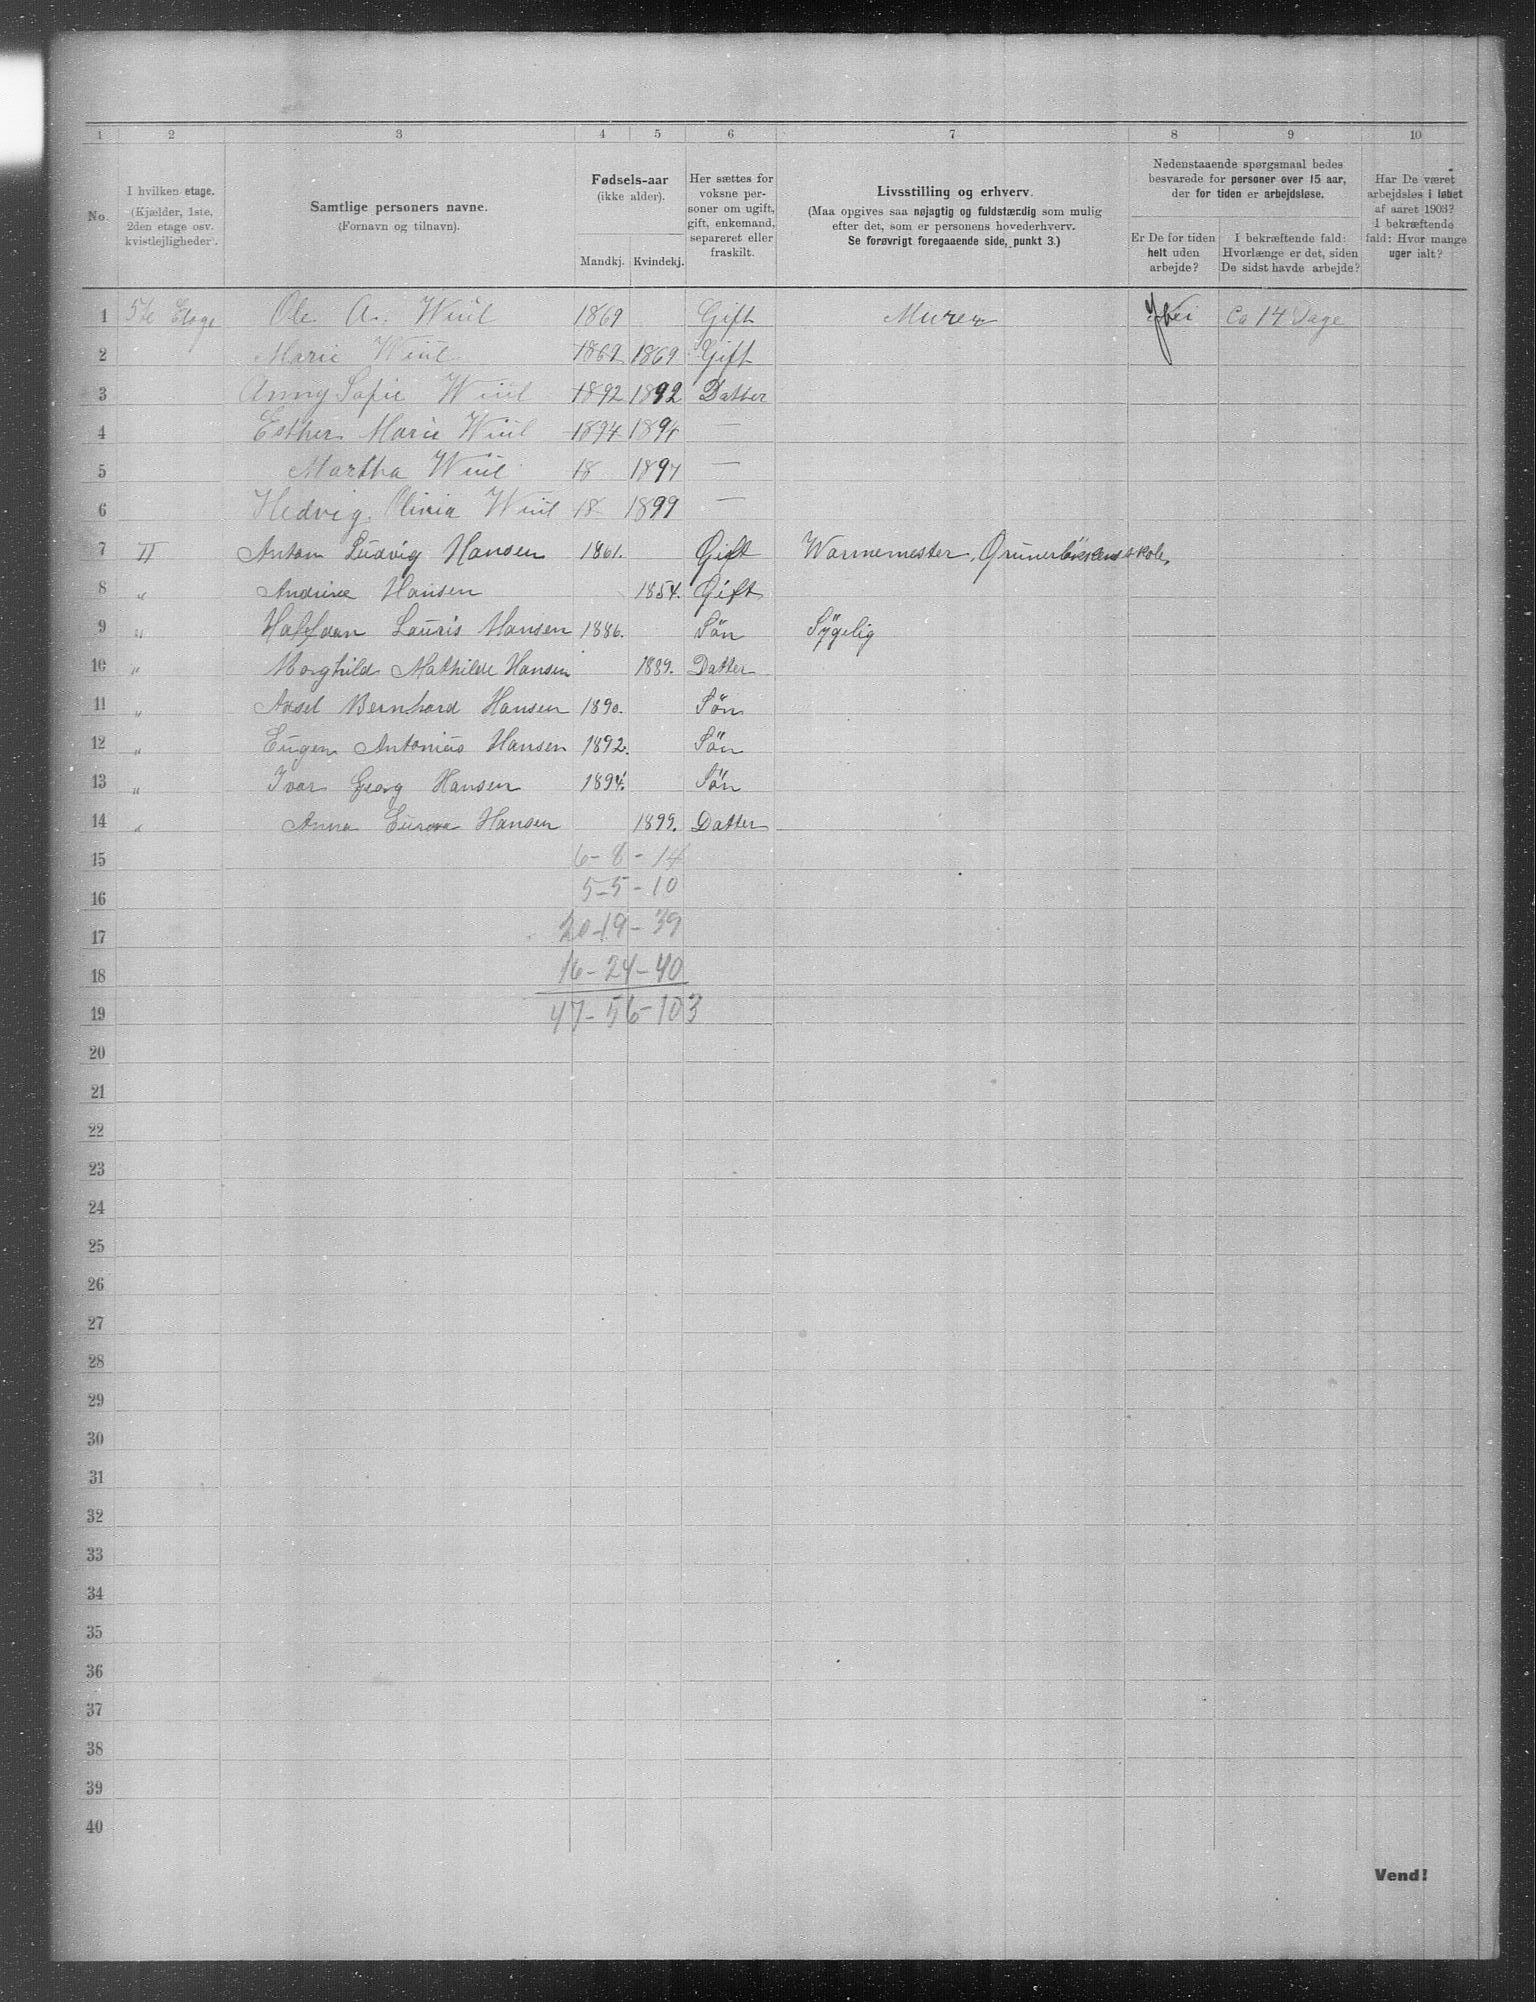 1 2 3 4 5 6 7 8 9 10
No.
I hvilken etage.
(Kjælder, 1ste,
2den etage osv.
kvistlejligheder).
Samtlige personers navne.
(Fornavn og tilnavn).
Fødsels-aar
(ikke alder).
Mandkj. Kvindekj.
Her sættes for
voksne per-
soner om ugift,
gift, enkemand,
separeret eller
fraskilt.
Livsstilling og erhverv.
(Maa opgives saa nøjagtig og fuldstændig som mulig
efter det, som er personens hovederhverv.
Se forøvrigt foregaaende side, punkt 3.)
Nedenstaaende spørgsmaal bedes
besvarede for personer over 15 aar,
der for tiden er arbejdsløse.
Er De for tiden
helt uden
arbejde?
I bekræftende fald:
Hvorlænge er det, siden
De sidst havde arbejde?
Har De været
arbejdsløs i løbet
af aaret 1903?
I bekræftende
fald: Hvor mange
uger ialt?
1 5te Etage Ole A. Wiul 1869 Gift Murer Nei Ca 14 Dage
2 Marie Wiul 1869 1869 Gift
3 Anny Sofie Wiul 1892 1892 Datter
4 Esther Marie Wiul 1894 1894 —
5 Martha Wiul 18 1897 —
6 Hedvig Olivia Wiul 18 1899 —
7 II Anton Ludvig Hansen 1861. Gift Warmemester, Grünerløkkens skole,
8 " Andrine Hansen 1854. Gift
9 " Halfdan Lauris Hansen 1886. Søn Sygelig
10 " Borghild Mathilde Hansen 1889. Datter
11 " Axel Bernhard Hansen 1890. Søn
12 " Eugen Antonius Hansen 1892. Søn
13 " Ivar Georg Hansen 1894. Søn
14 " Anna Hansen 1899. Datter
15 6-8-14
16 5-5-10
17 20-19-39
18 16-24-40
19 47-56-103
20
21
22
23
24
25
26
27
28
29
30
31
32
33
34
35
36
37
38
39
40
Vend!